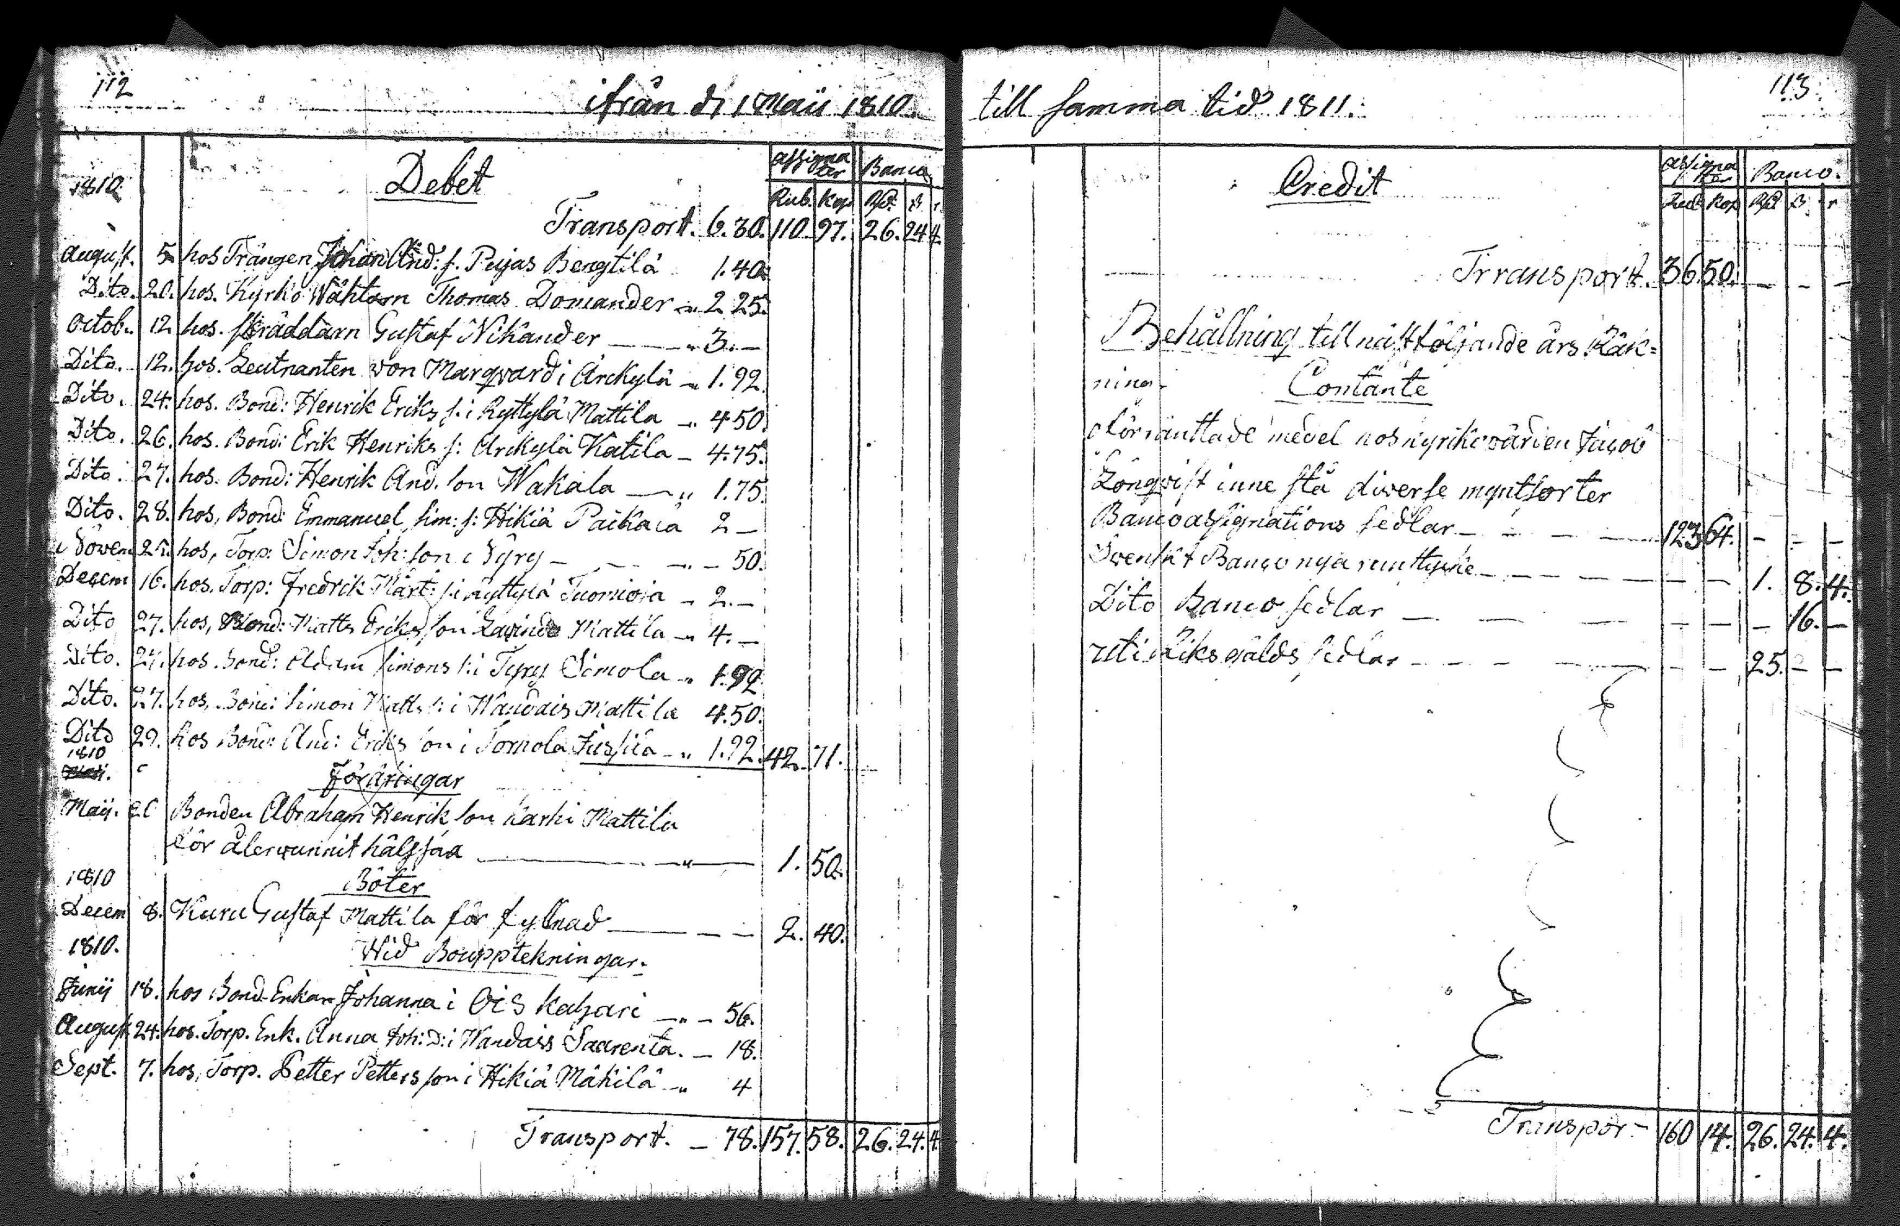 112
ifrån d 1 Maii 1810.
1810.
Debet
Assignater
Banco
Rub. Kop. Rd. s. r.
Transport. 6.30. 110.97. 26.24.4.
August. 5. hos Johan And: s. Pujas Bengtilä 1.40.
Dito. 20. hos. Kyrko Wähtarn Thomas Domander 2.25.
Octob. 12. hos. skräddarn Gustaf Nikander 3.—
Dito. 12. hos. Leutnanten von Marqvard i Arckylä 1.92.
Dito. 24. hos. Bond: Henrik Eriks s: i Ryttylä Mattila 4.50.
Dito. 26. hos. Bond: Erik Henriks s: Arckylä Katila 4.75.
Dito. 27. hos. Bond: Henrik And. son Wakala 1.75.
Dito. 28. hos, Bond: Emmanuel Sim: s: Hikiä Paikala 2 —
Novem 25. hos, Torp: Simon Joh: son i 50.
Decem 16. hos. Torp: Fredrik Mårt: s: i Ryttylä 2.—
Dito 27. hos, Bond: Matts Eriks son Mattila 4.—
Dito. 27. hos. Bond: Adam Simons s: i Simola 1.92
Dito. 27. hos. Bond: Simon Matts s: i Wandais Mattila 4.50.
Dito 29. hos Bond: And: Eriks son i Tornola Jussila 1.92. 42. 71.
1810
Föräringar
Maij. 20 Bonden Abraham Henrik son Karhi Mattila
för återwunnit hälssa 1. 50.
1810
Böter
Decem 8. Kuru Gustaf Mattila för fyllnad 2. 40.
1810.
Wid Bouppteckningar.
Junij 18. hos Bond. Enkan Johanna i Ois 56.
August 24. hos. Torp. Enk. Anna Joh: D: i Wandais Saarenta. 18.
Sept. 7. hos, Torp. Petter Petters son i Hikiä Mäkilä 4
Transport. — 78. 157. 58. 26. 24. 4
113.
till samma tid 1811.
Credit
Assignater
Banco.
Rub. Kop Rd s. r
Transport. 36 50. — — —
Behållning till nästföljande års Räk=
ning
Contante
oförräntade medel hos kyrkovärden Jacob
Lönqvist inne stå diverse myntsorter
Banco assignations sedlar 123 64. — — —
Svenskt Banco nya 1. 8. 4.
Dito Banco sedlar — 16. —
uti Riks gälds sedlar 25. — —
Transpor. 160 14. 26. 24. 4.